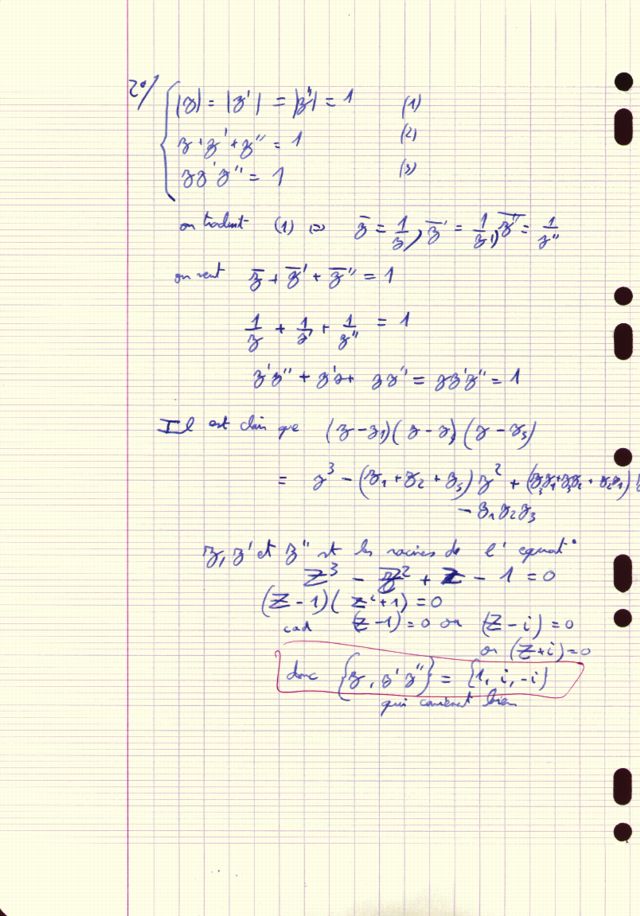 2°/ |z| = |z'| = |z''| = 1 (1)
z + z' + z'' = 1 (2)
zz'z'' = 1 (3)
on traduit (1) ⇔ z̅ = 1/z, z̅' = 1/z', z̅'' = 1/z''
z̅ + z̅' + z̅'' = 1
1/z + 1/z' + 1/z'' = 1
z'z'' + z'z + zz'' = zz'z'' = 1
Il est clair que (z - z₁)(z - z₂)(z - z₃)
= z³ - (z₁ + z₂ + z₃) z² +
- z₁z₂z₃
z, z' et z'' st les racines de l'équat°
Z³ - Z² + Z - 1 = 0
(Z - 1)(Z² + 1) = 0
cad (Z - 1) = 0 or (Z - i) = 0
or (Z + i) = 0
donc {z, z' z''} = {1, i, -i}
qui convient bien